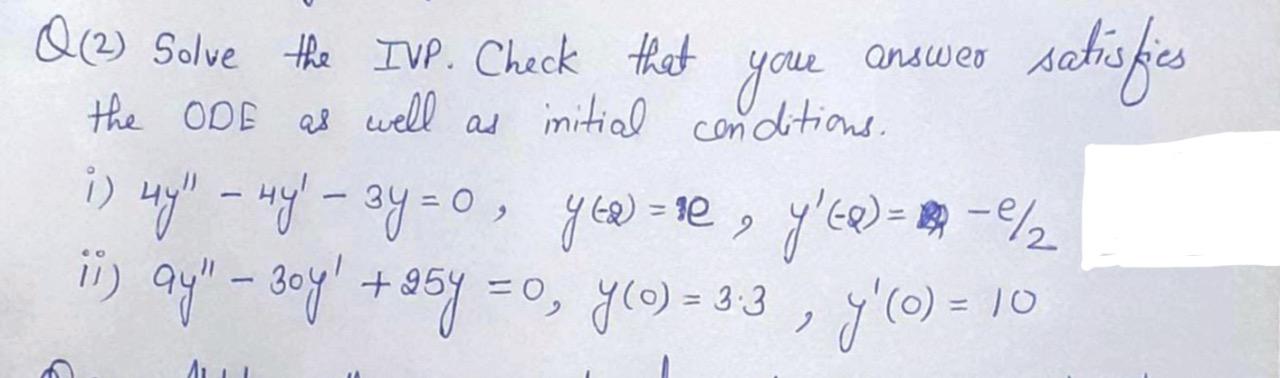 Q(2) Solve the IVP. Check that your answer satisfies
the ODE as well as initial conditions.
i) 4y'' - 4y' - 3y = 0, y(-2) = e, y'(-2) = -e/2
ii) 9y'' - 30y' + 25y = 0, y(0) = 3.3, y'(0) = 10